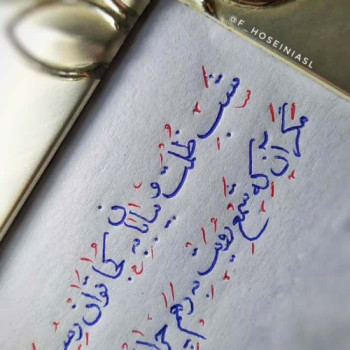 @F_HOSEINIASL
شب ظلمت و بیابان به کجا توان رسید
مگر آن که شمع رویت به رهم چرا